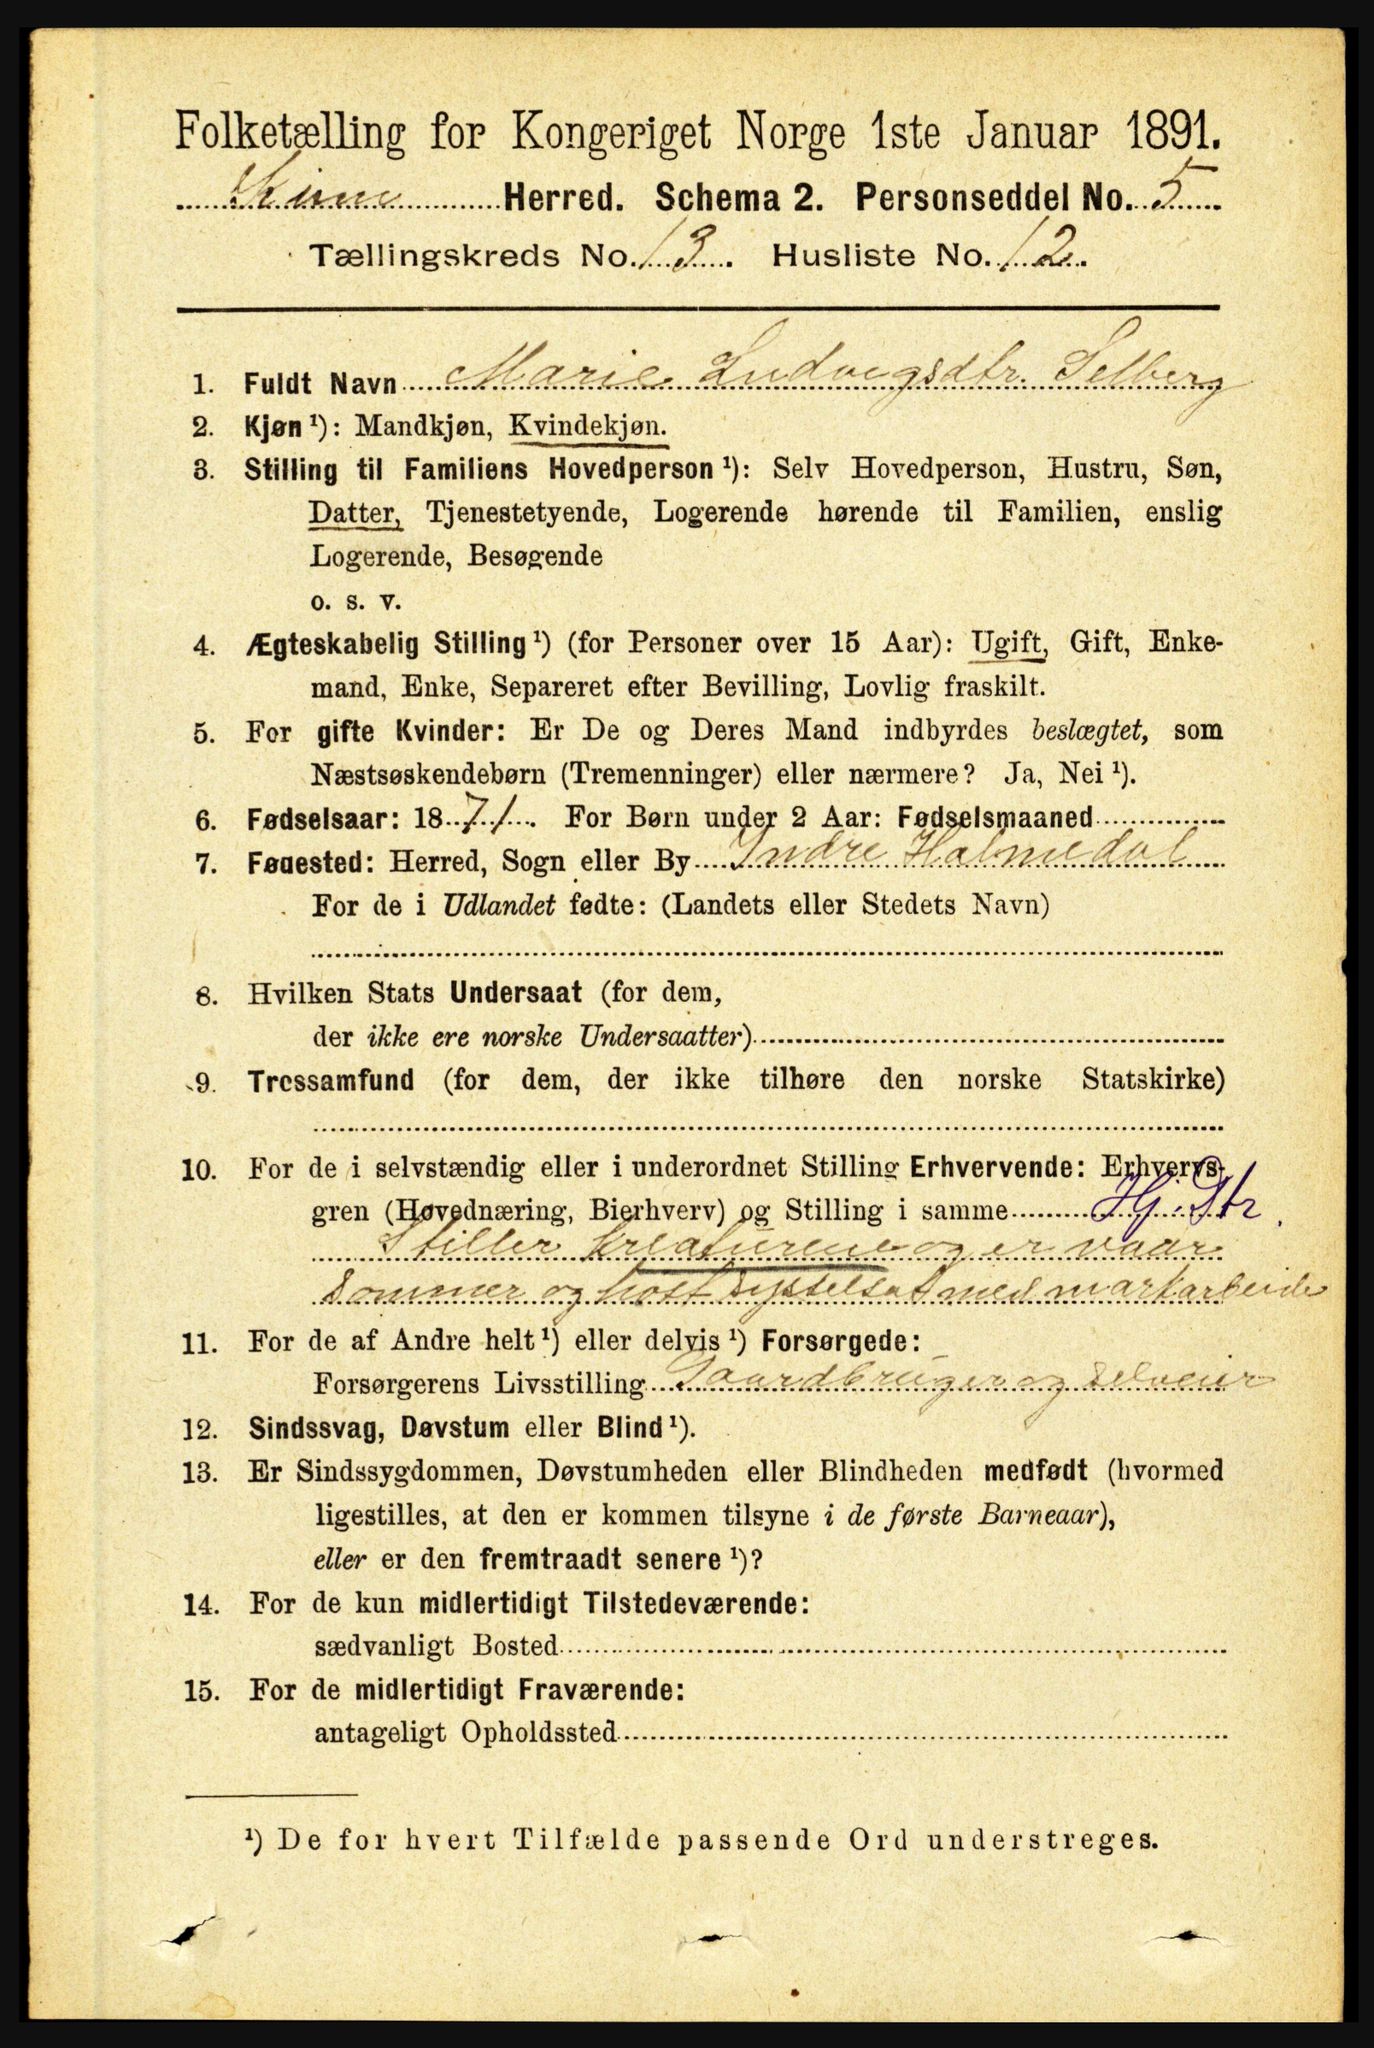 Folketælling for Kongeriget Norge 1ste Januar 1891.
Kinn Herred. Schema 2. Personseddel No. 5
Tællingskreds No. 13. Husliste No. 12.
1. Fuldt Navn Marie Ludvigsdtr. Selberg
2. Kjøn ¹): Mandkjøn, Kvindekjøn.
3. Stilling til Familiens Hovedperson ¹): Selv Hovedperson, Hustru, Søn,
Datter, Tjenestetyende, Logerende hørende til Familien, enslig
Logerende, Besøgende
o. s. v.
4. Ægteskabelig Stilling ¹) (for Personer over 15 Aar): Ugift, Gift, Enke-
mand, Enke, Separeret efter Bevilling, Lovlig fraskilt.
5. For gifte Kvinder: Er De og Deres Mand indbyrdes beslægtet, som
Næstsøskendebørn (Tremenninger) eller nærmere? Ja, Nei ¹).
6. Fødselsaar: 1871. For Børn under 2 Aar: Fødselsmaaned
7. Fødested: Herred, Sogn eller By Indre Holmedal
For de i Udlandet fødte: (Landets eller Stedets Navn)
8. Hvilken Stats Undersaat (for dem,
der ikke ere norske Undersaatter)
9. Trossamfund (for dem, der ikke tilhøre den norske Statskirke)
10. For de i selvstændig eller i underordnet Stilling Erhvervende: Erhvervs-
gren (Hovednæring, Bierhverv) og Stilling i samme Hj. Dtr.
Stiller kreaturene og er vaar
Sommer og høst sysselsat med markarbeide
11. For de af Andre helt ¹) eller delvis ¹) Forsørgede:
Forsørgerens Livsstilling Gaardbruger og selveier
12. Sindssvag, Døvstum eller Blind ¹).
13. Er Sindssygdommen, Døvstumheden eller Blindheden medfødt (hvormed
ligestilles, at den er kommen tilsyne i de første Barneaar),
eller er den fremtraadt senere ¹)?
14. For de kun midlertidigt Tilstedeværende:
sædvanligt Bosted
15. For de midlertidigt Fraværende:
antageligt Opholdssted
¹) De for hvert Tilfælde passende Ord understreges.